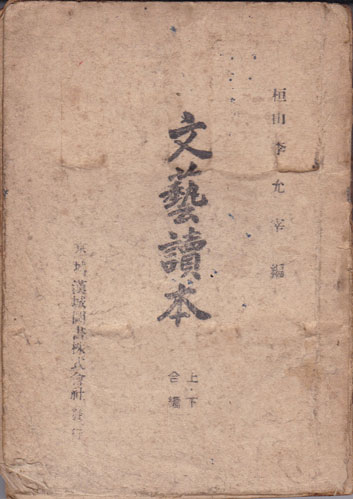 桓山 李允宰 編
文藝讀本
上·下
合編
漢城圖書株式會社 發行